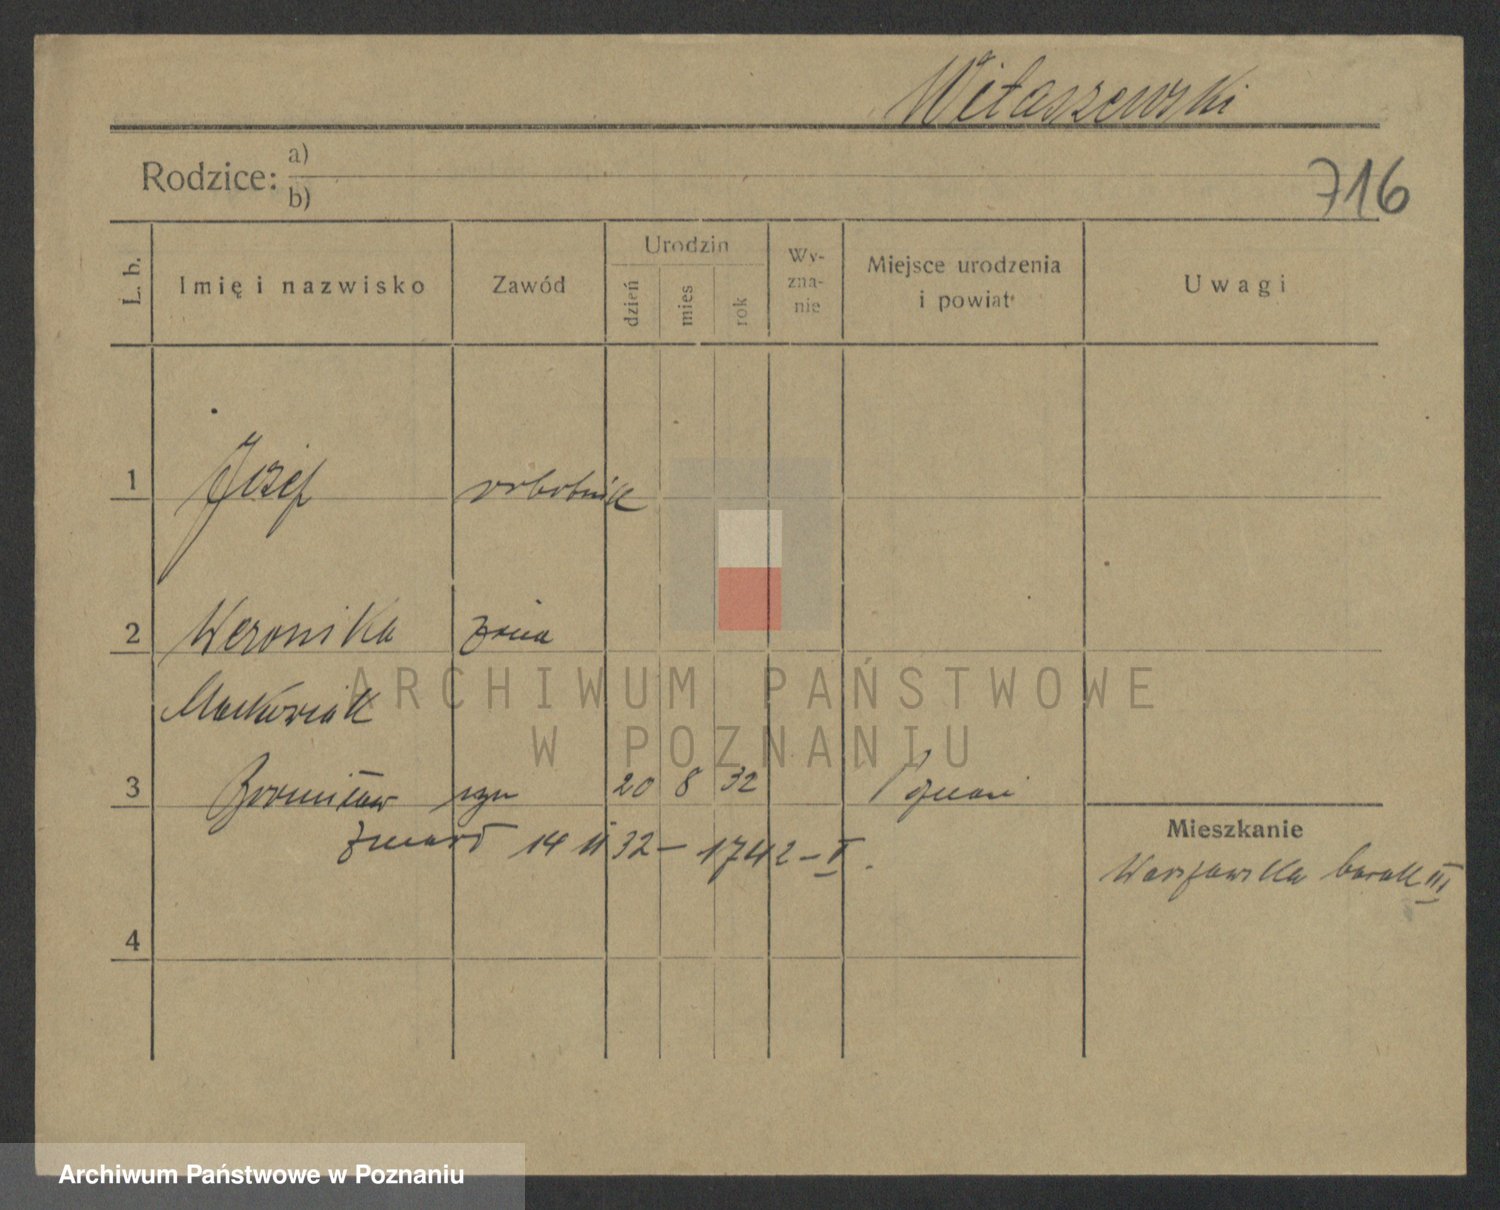 Witaszewski
Rodzice: a)
b)
716
L. b. Imię i nazwisko Zawód Urodzin dzień mies rok Wy-zna-nie Miejsce urodzenia i powiat Uwagi
1 Józef robotnik
2 Weronika żona
Maćkowiak
3 Bronisław syn 20 8 32 Poznań
zmarł 14 11 32 – 1742 – II.
Mieszkanie
Warszawska barak III
4
ARCHIWUM PAŃSTWOWE
W POZNANIU
Archiwum Państwowe w Poznaniu